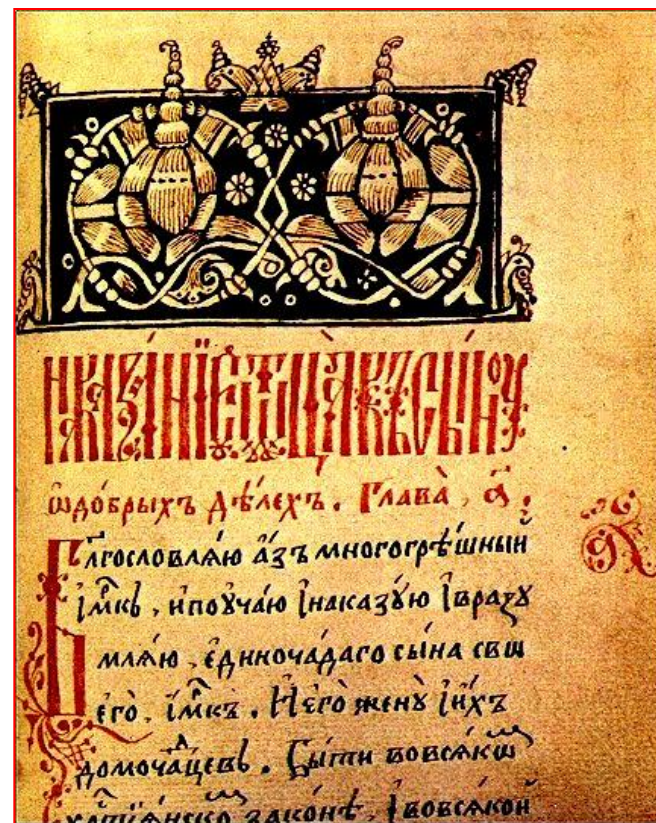 наказанїе ѿ ѻтца къ сынꙋ
ѡ добрыхъ дѣлехъ. Глава̀, а҃.
Бл҃гословлѧ́ю а́зъ многогрѣ́шный
і҆мкъ, и поꙋча́ю і҆ наказꙋ́ю і҆ вразꙋ
млѧ́ю, єдиноча́даго сы́на сво
єго̀, і҆мкъ. И єго̀ женꙋ̀ і҆ и́хъ
домоча́дцевъ. Бы́ти во всѧ́ко
законѣ, І во всѧ́кой